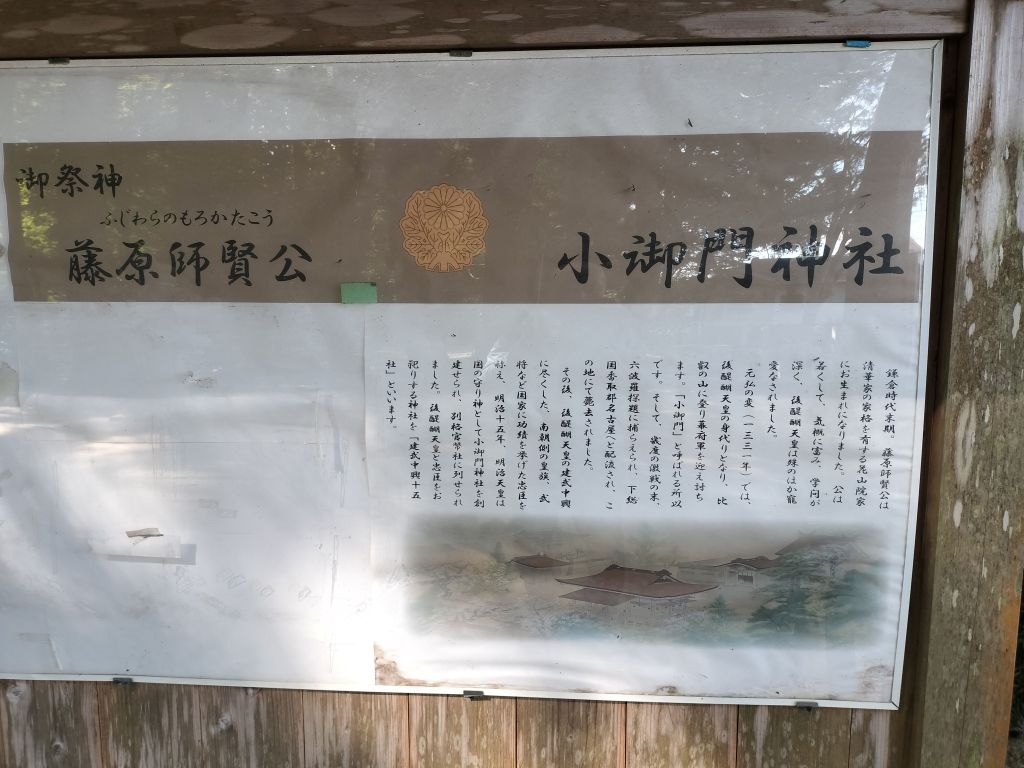 小御門神社
御祭神
ふじわらのもろかたこう
藤原師賢公
鎌倉時代末期。藤原師賢公は
清華家の家格を有する花山院家
にお生まれになりました。公は
若くして、気概に富み、学問が
深く、後醍醐天皇は殊のほか寵
愛なされました。
元弘の変(一三三一年)では、
後醍醐天皇の身代りとなり、比
叡の山に登り幕府軍を迎え討ち
ます。「小御門」と呼ばれる所以
です。そして、幾度の激戦の末、
六波羅探題に捕らえられ、下総
国香取郡名古屋へと配流され、こ
の地にて薨去されました。
その後、後醍醐天皇の建武中興
に尽くした、南朝側の皇族、武
将など国家に功績を挙げた忠臣を
称え、明治十五年、明治天皇は
国の守り神として小御門神社を創
建せられ、別格官幣社に列せられ
ました。後醍醐天皇と忠臣をお
祀りする神社を「建武中興十五
社」といいます。